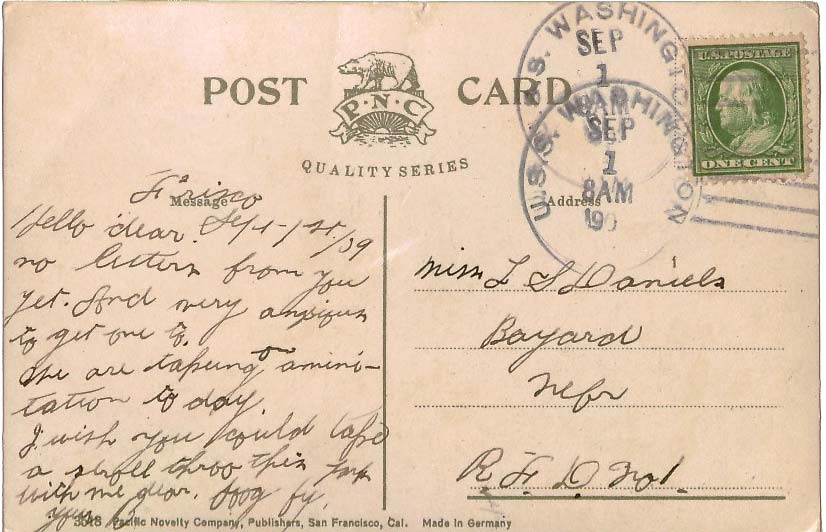 POST CARD
P·N·C
QUALITY SERIES
U.S.S. WASHINGTON
SEP
1
8AM
U.S.S. WASHINGTON
SEP
1
8AM
190
U.S. POSTAGE
ONE CENT
Message
Address
Frisco
Sept-1st/09
Hello dear.
no letters from you
yet. And very anxious
to get one to.
We are takeing amini-
tation to day
I wish you could take
a stroll throo this
with me dear.
Miss L S Daniels
Bayard
Nebr
R. F. D. No 1.
3548 Pacific Novelty Company, Publishers, San Francisco, Cal. Made in Germany